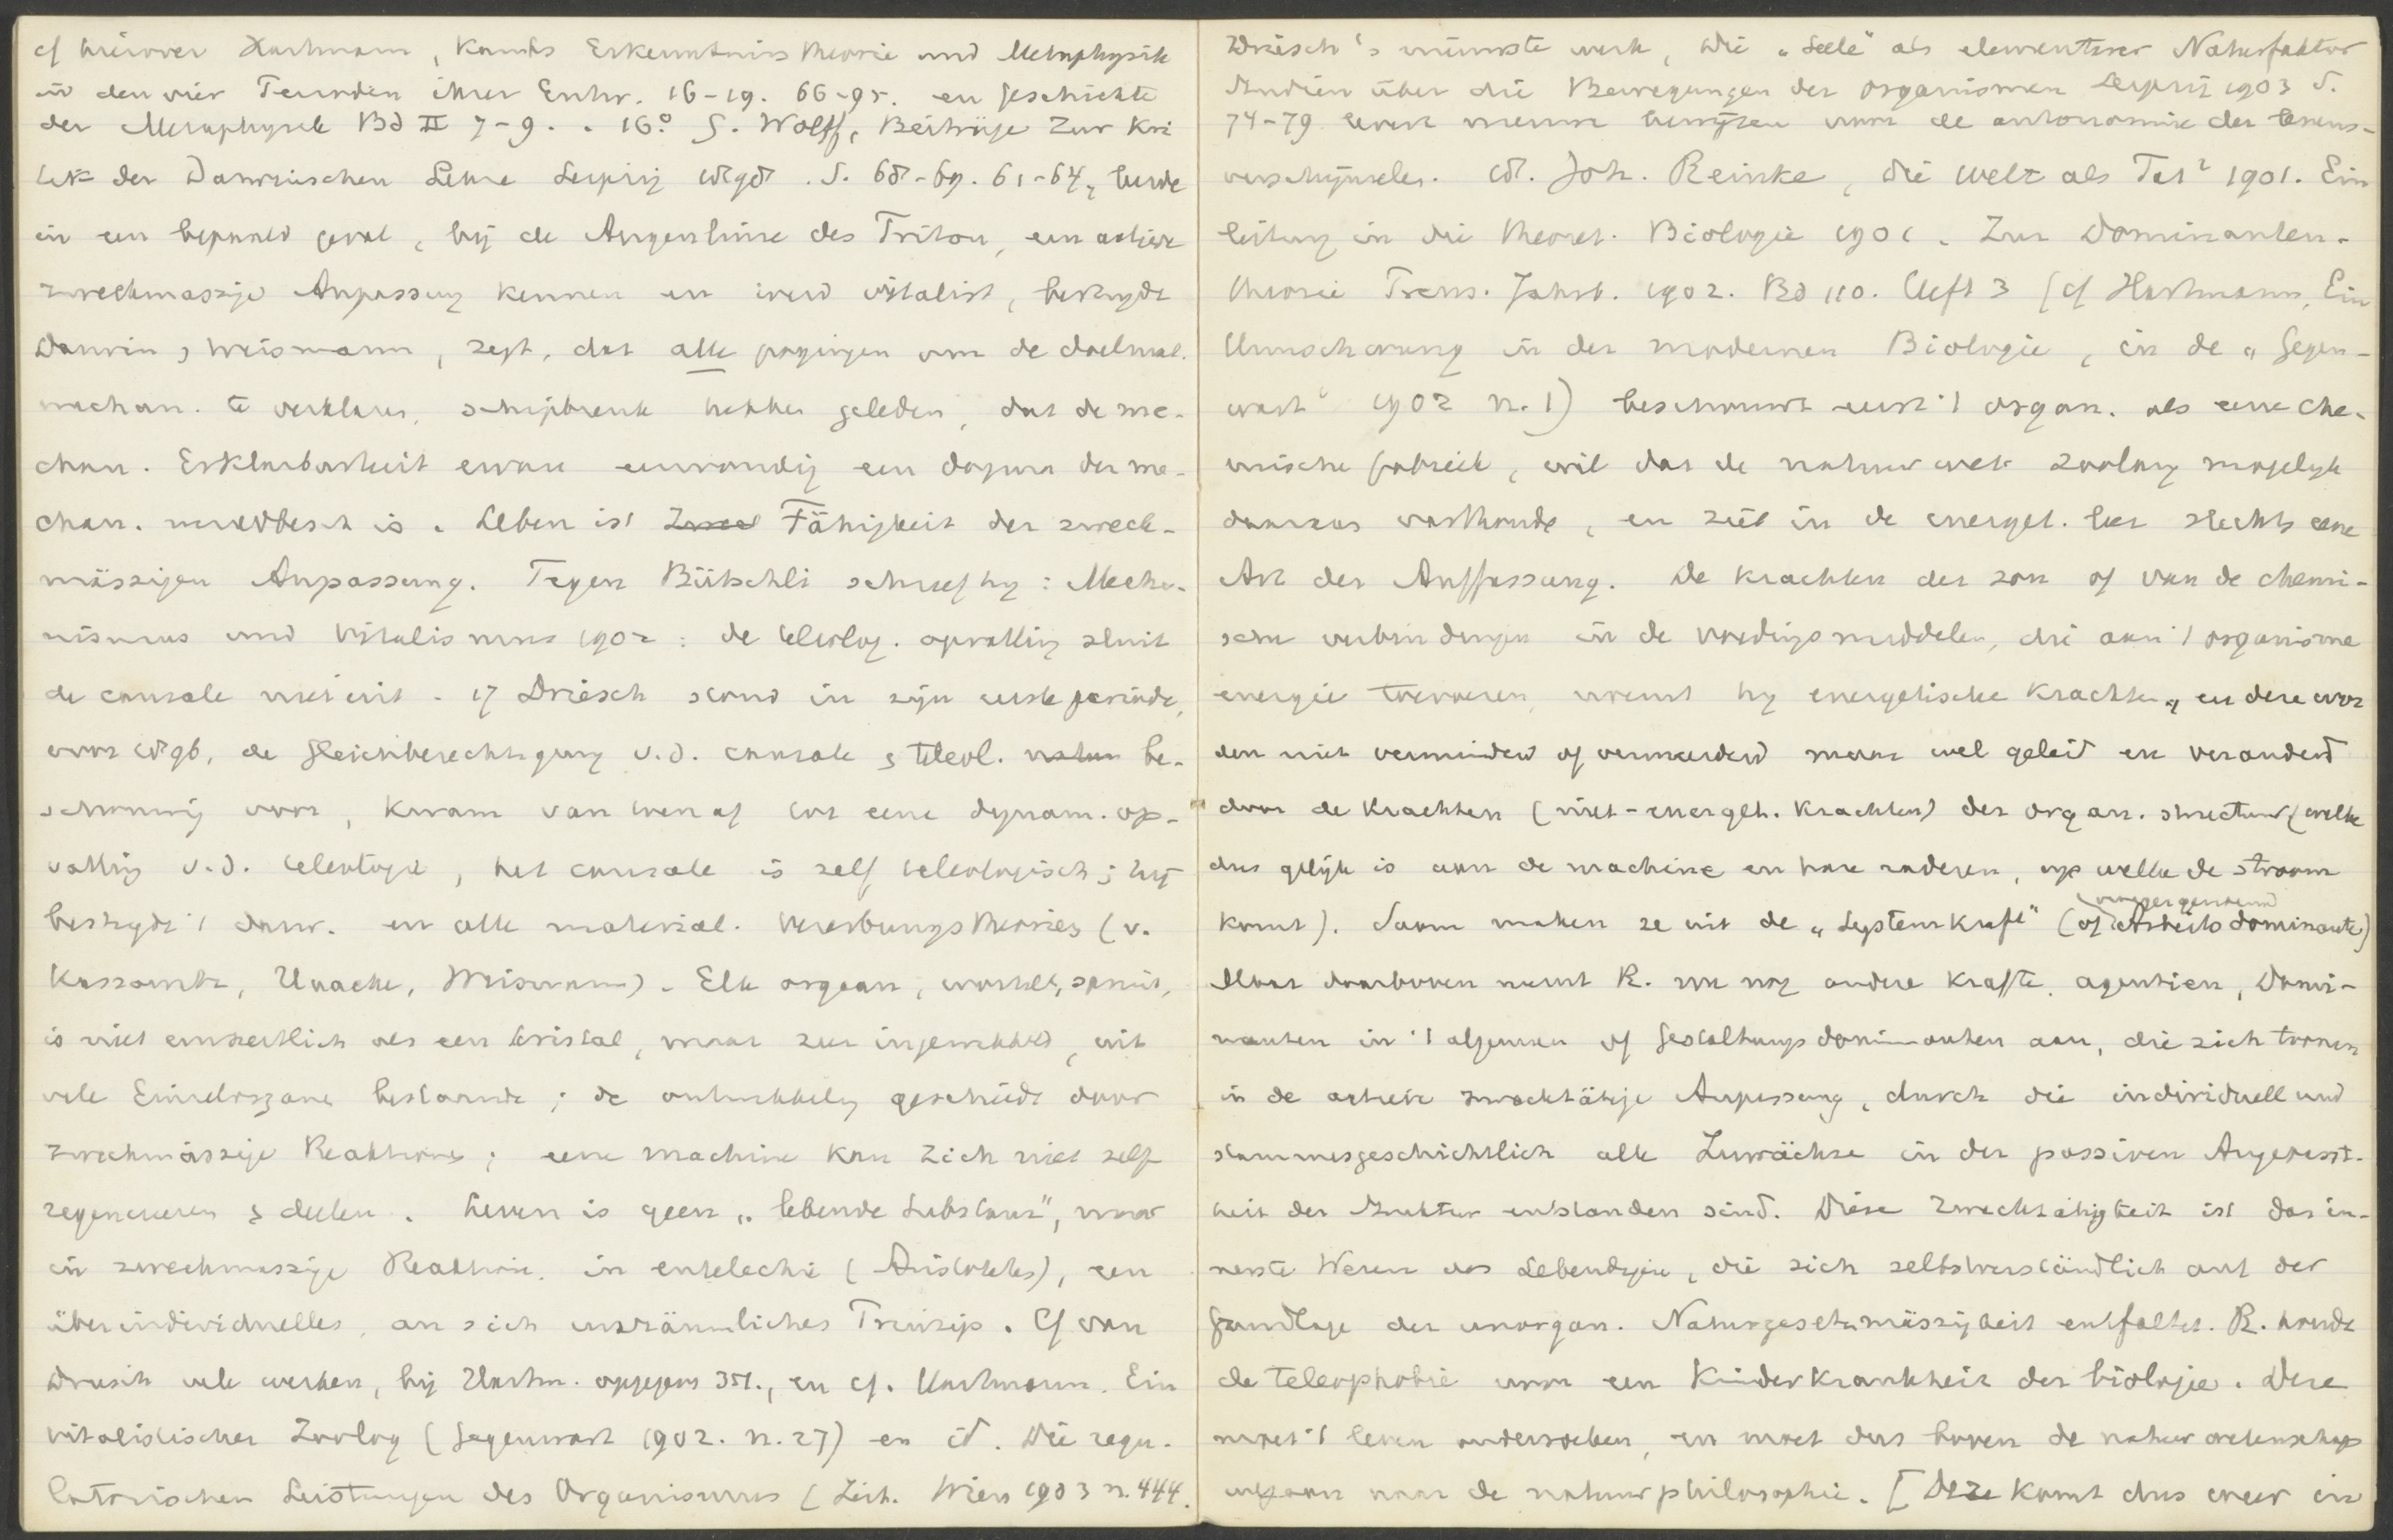 cf hierover Hartmann, Kants Erkenntnistheorie und Metaphysik
in den vier Perioden ihrer Entw. 16-19. 66-95. en Geschichte
der Metaphysik Bd II 7-9. . 16° G. Wolff, Beiträge zur Kri
tik der Darwinschen Lehre Leipzig 1898. S. 68-69. 61-64, leerde
in een bepaald geval, bij de Augenlinse des Triton, een actieve
zweckmässige Anpassung kennen en werd vitalist, bestrijdt
Darwin & Weismann, zegt, dat alle pogingen om de doelmat.
mechan. te verklaren, schipbreuk hebben geleden, dat de me-
chan. Erklärbarkeit ervan eenvoudig een dogma der me-
chan. wereldbesch is. Leben ist Fähigkeit der zweck-
mässigen Anpassung. Tegen Bütschli schreef hij: Mecha-
nismus und Vitalismus 1902: de teleolog. opvatting sluit
de causale niet uit. 17 Driesch stond in zijn eerste periode,
voor 1896, de Gleichberechtigung v.d. causale & teleol. natuur be-
schouwing voor, kwam van toen af tot eene dynam. op-
vatting v.d. teleologie, het causale is zelf teleologisch; hij
bestrijdt 't darw. en alle material. Vererbungstheories (v.
Kassowitz, Haacke, Weismann). Elk orgaan, wortel, spruit,
is niet einheitlich als een kristal, maar zeer ingewikkeld, uit
vele Einzelorgane bestaande; de ontwikkeling geschiedt door
zweckmässige Reaktionen; eene machine kan zich niet zelf
regenereren & deelen. Leven is geen „lebende Substanz", maar
in zweckmassige Reaktion. in entelechie (Aristoteles), een
überindividuelles, an sich unräumliches Prinzip. Cf van
Driesch vele werken, bij Hartm. opgegeven 351., en cf. Hartmann. Ein
vitalistischer Zoolog (Gegenwart 1902. n. 27) en id. Die regu-
latorischen Leistungen des Organismus (Zeit. Wien 1903 n. 444.
Driesch's nieuwste werk, Die „Seele" als elementarer Naturfaktor
Studien über die Bewegungen der Organismen Leipzig 1903 S.
74-79 levert nieuwe bewijzen voor de autonomie der levens-
verschijnselen. 18. Joh. Reinke, Die Welt als Tat² 1901. Ein
leitung in die theoret. Biologie 1901. Zur Dominanten-
theorie Preuss. Jahrb. 1902. Bd 110. Heft 3 (cf Hartmann, Ein
Umschwung in der modernen Biologie, in de „Gegen-
wart" 1902 n. 1) beschouwt eerst 't organ. als eene che-
mische fabriek, wil dat de natuurwet zoolang mogelijk
daaraan vasthoude, en ziet in de energet. leer slechts eene
Art der Auffassung. De krachten der zon of van de chemi-
sche verbindingen in de voedingsmiddelen, die aan 't organisme
energie toevoeren, noemt hij energetische krachten, en deze wor
den niet verminderd of vermeerderd maar wel geleid en veranderd
door de krachten (niet-energet. krachten) der organ. structuur (welke
dus gelijk is aan de machine en hare raderen, op welke de stroom
komt). Saam maken ze uit de „Systemkraft" (of Arbeitsdominante)
Maar daarboven neemt R. nu nog andere krafte, agentien, Domi-
nanten in 't algemeen of Gestaltungsdominanten aan, die zich toonen
in de actieve zwecktätige Anpassung, durch die individuell und
stammesgeschichtlich alle Zuwächse in der passiven Angepasst-
heit der Struktur entstanden sind. Diese Zwecktätigkeit ist das in-
nerste Wesen des Lebendigen, die sich selbstverständlich auf der
Grundlage der unorgan. Naturgesetzmässigkeit entfaltet. R. houdt
de Teleophobie voor een Kinderkrankheit der biologie. Deze
moet 't leven onderzoeken, en moet dus boven de natuurwetenschap
uitgaan naar de natuurphilosophie. [Deze komt dus weer in